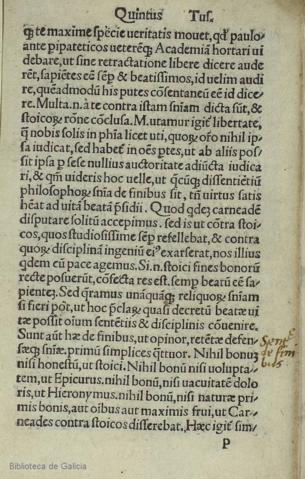 Quintus Tus.
q̃ te maxime spẽcie ueritatis mouet, qd' paulo/
ante pipateticos ueterẽq; Academiã hortari ui
debare, ut sine retractatione libere dicere aude
rẽt, sapiẽtes eẽ sẽp & beatissimos, id uelim audi
re, quẽadmodũ his putes cõsentaneũ eẽ id dice
re. Multa.n.à te contra istam sñiam dicta sũt, &
stoicoꝝ rõne cõclusa. M. utamur igit̃ libertate,
q̃ nobis solis in phĩa licet uti, quoꝝ orõ nihil ip/
sa iudicat, sed habet̃ in oẽs ptes, ut ab aliis pos/
sit ipsa p sese nullius auctoritate adiũcta iudica
ri, & qm̃ uideris hoc uelle, ut q̃cũq; dissentiẽtiũ
philosophoꝝ sñia de finibus sit, tñ uirtus satis
hẽat ad uitã beatã p̃sidii. Quod qdez carneadẽ
disputare solitũ accepimus. sed is ut cõtra stoi/
cos, quos studiosissime sẽp refellebat, & contra
quoꝝ disciplinã ingeniũ ei⁹ exarserat, nos illius
qdem cũ pace agemus. Si.n.stoici fines bonorũ
recte posuerũt, cõfecta res est. semp beatũ eẽ sa/
piẽtez. Sed q̃ramus unãquãq; reliquoꝝ sñiam
si fieri põt, ut hoc p̃claꝝ quasi decretũ beatæ ui
tæ possit oium sentẽtiis & disciplinis cõuenire.
Sunt aũt hæ de finibus, ut opinor, retẽtæ defen/
sæq; sñiæ. primũ simplices q̃ttuor. Nihil bonuz
nisi honestũ, ut stoici. Nihil bonũ nisi uolupta/
tem, ut Epicurus. nihil bonũ, nisi uacuitatẽ dolo
ris, ut Hieronymus. nihil bonũ, nisi naturæ pri/
mis bonis, aut oibus aut maximis frui, ut Car/
neades contra stoicos disserebat. Hæc igit̃ sim/
P
de fini
bus
Biblioteca de Galicia